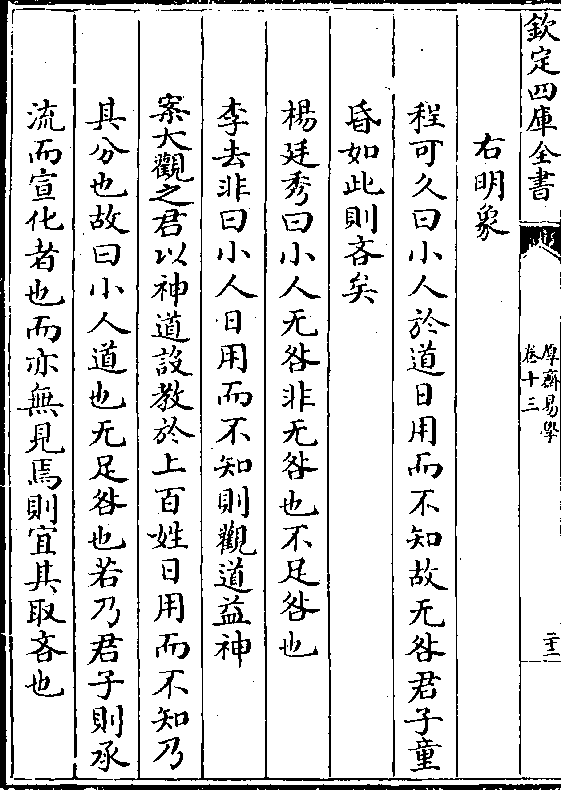 欽定四庫全書
厚齋易學
卷十三
二十二
右明象
程可久曰小人於道日用而不知故无咎君子童
昏如此則吝矣
楊廷秀曰小人无咎非无咎也不足咎也
李去非曰小人日用而不知則觀道益神
案大觀之君以神道設教於上百姓日用而不知乃
其分也故曰小人道也无足咎也若乃君子則承
流而宣化者也而亦無見焉則宜其取吝也